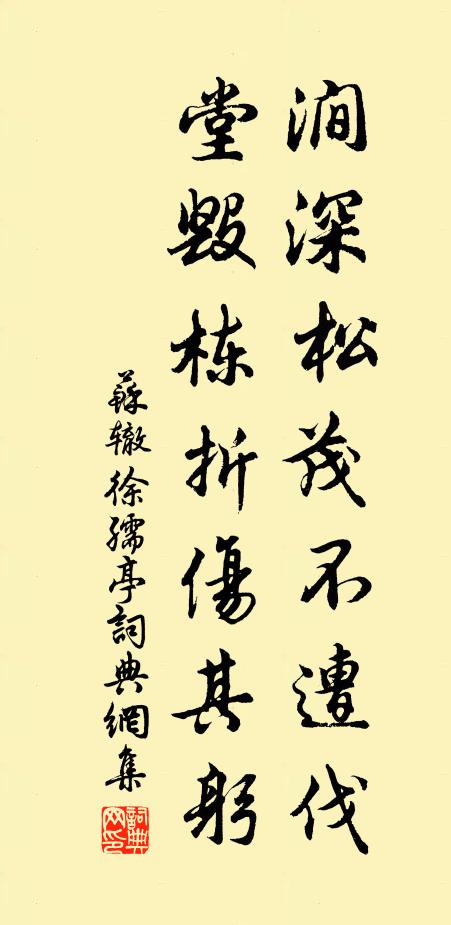 澗深松茂不遭伐
堂毀棟折傷其躬
蘇轍徐孺亭詞典網集
詞典網印